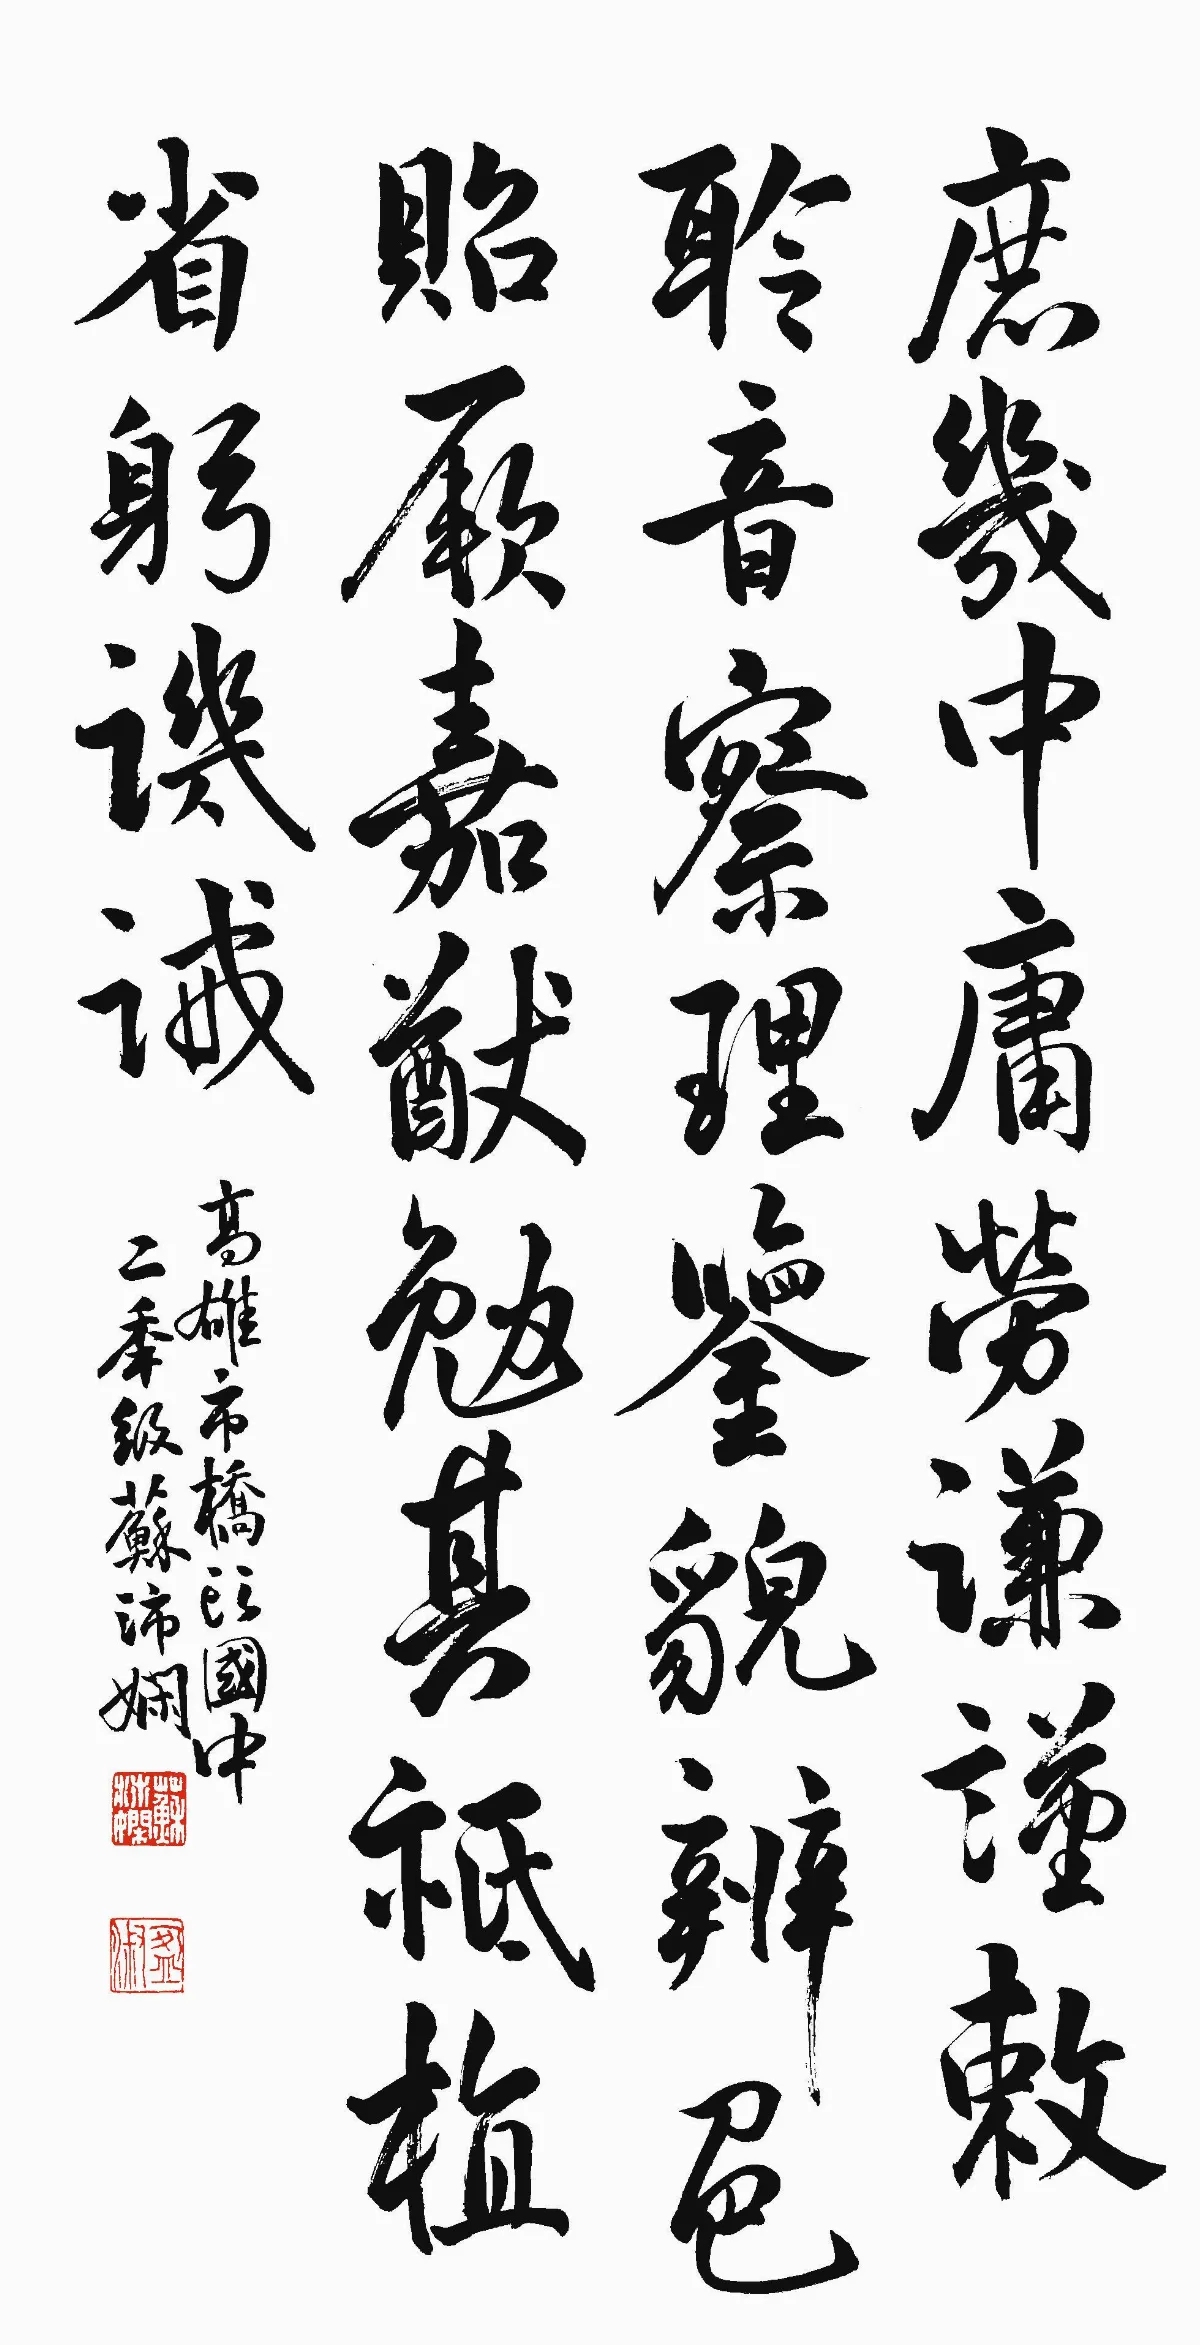 庶幾中庸勞謙謹敕
聆音察理鑒貌辨色
貽厥嘉猷勉其祗植
省躬譏誡
高雄市橋頭國中
二年級蘇沛嫻